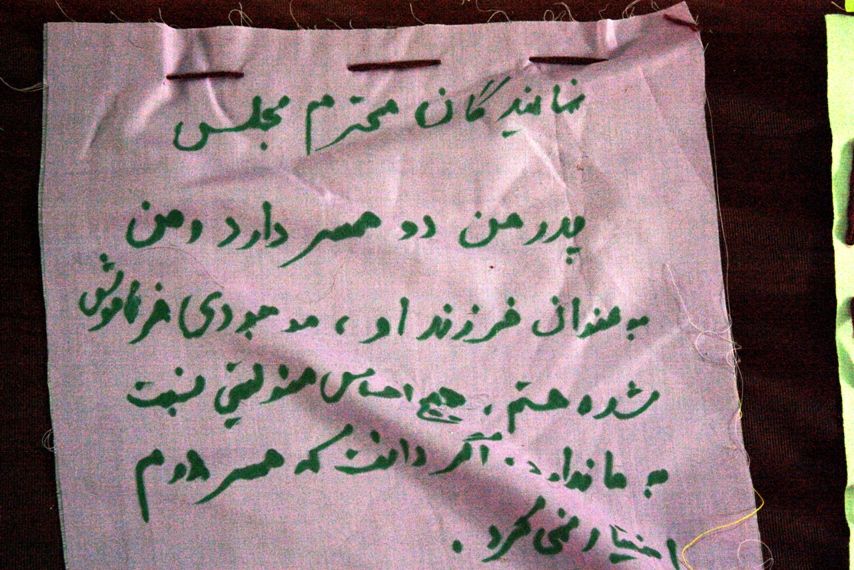 نمایندگان محترم مجلس
پدر من دو همسر دارد و من
به عنوان فرزند او، موجودی فراموش
شده هستم. هیچ احساس مسئولیتی نسبت
به ما ندارد. اگر داشت که همسر دوم
اختیار نمی کرد.